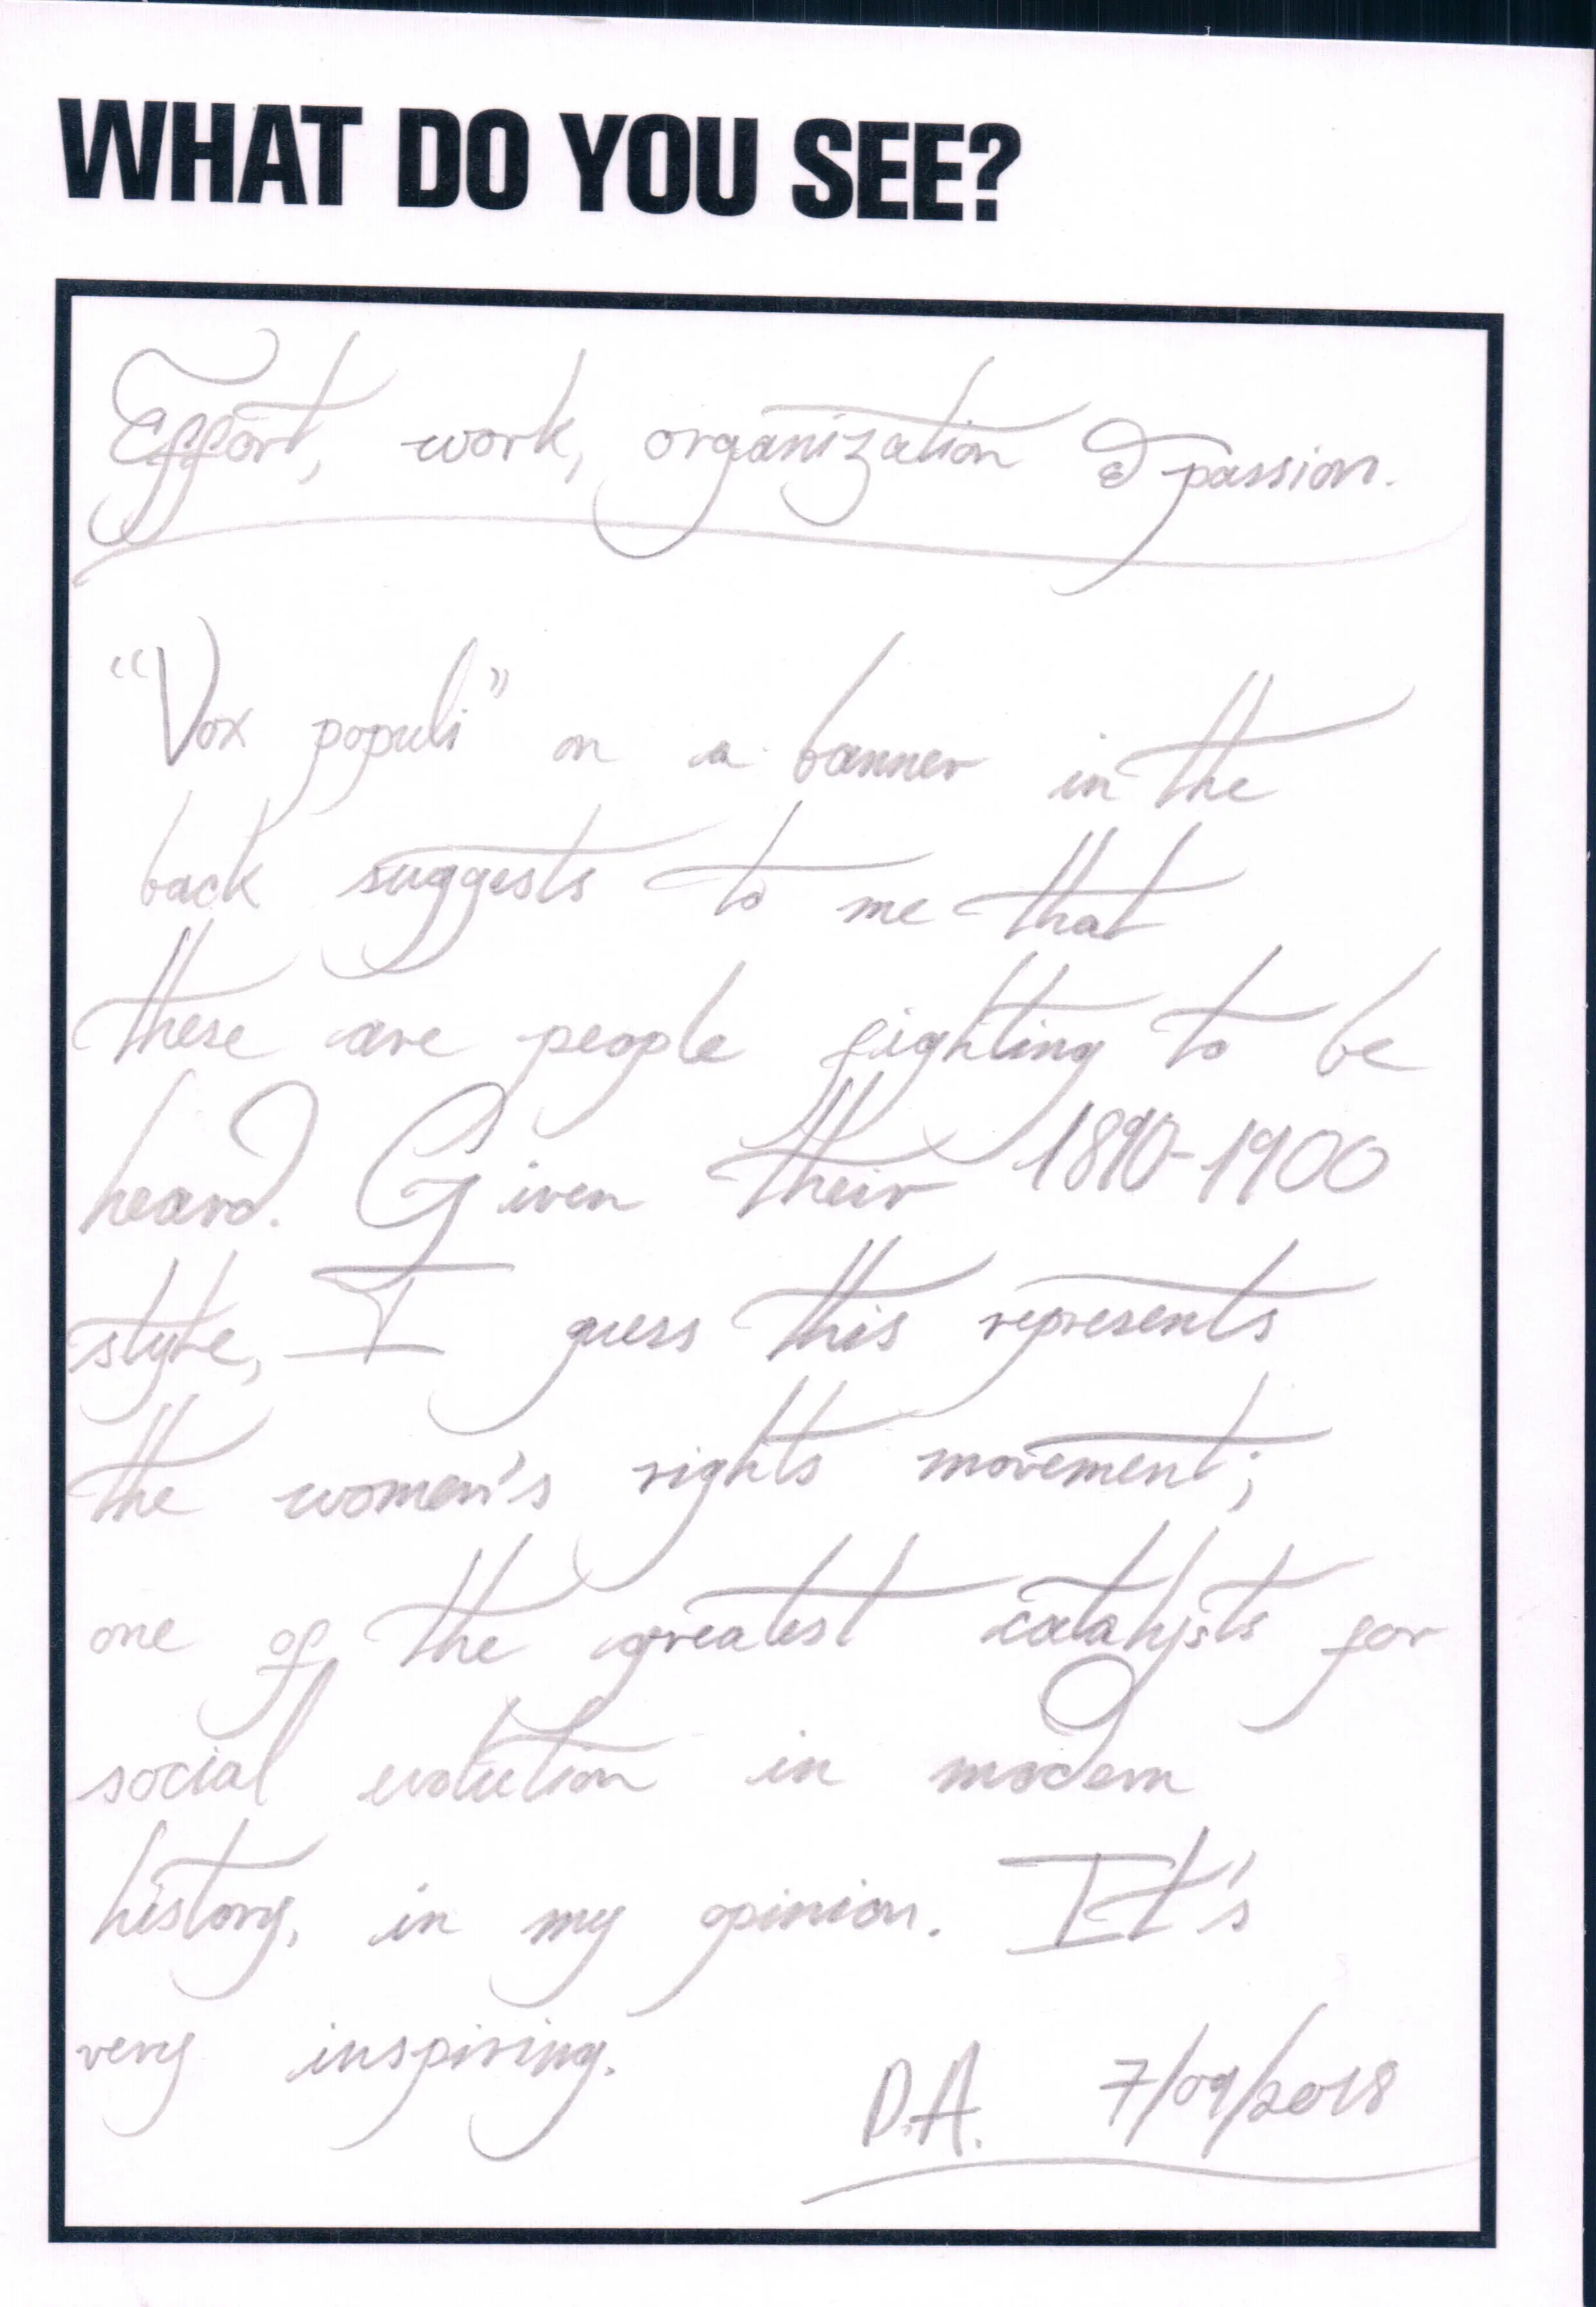 WHAT DO YOU SEE?
Effort, work, organization & passion.
"Vox populi" on a banner in the
back suggests to me that
these are people fighting to be
heard. Given their 1890-1900
style, I guess this represents
the women's rights movement;
one of the greatest catalysts for
social evolution in modern
history, in my opinion. It's
very inspiring.
D.A. 7/09/2018